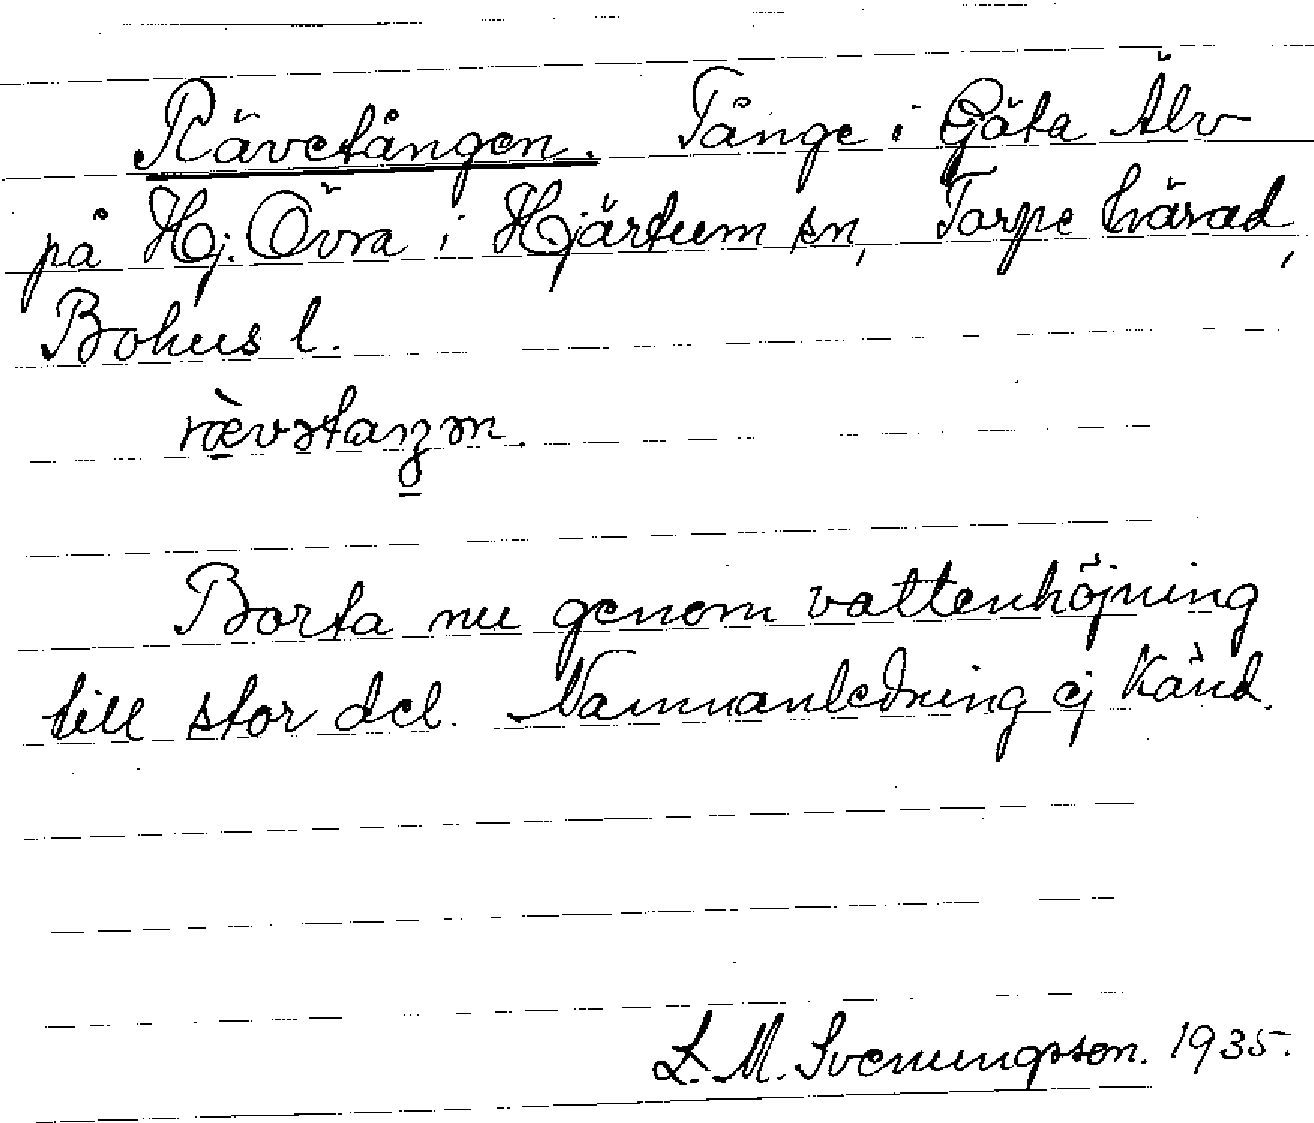 Rävetången. Tånge i Göta Älv
på Hj. Övra i Hjärtum sn, Torpe härad,
Bohus l.
rævətaŋən.
Borta nu genom vattenhöjning
till stor del. Namnanledning ej känd.
L. M. Svenungsson. 1935.